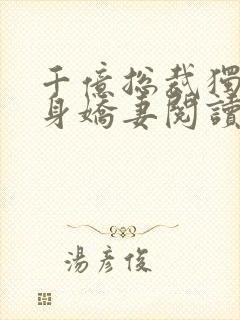 千億總裁獨
身嬌妻閱讀
湯彥俊